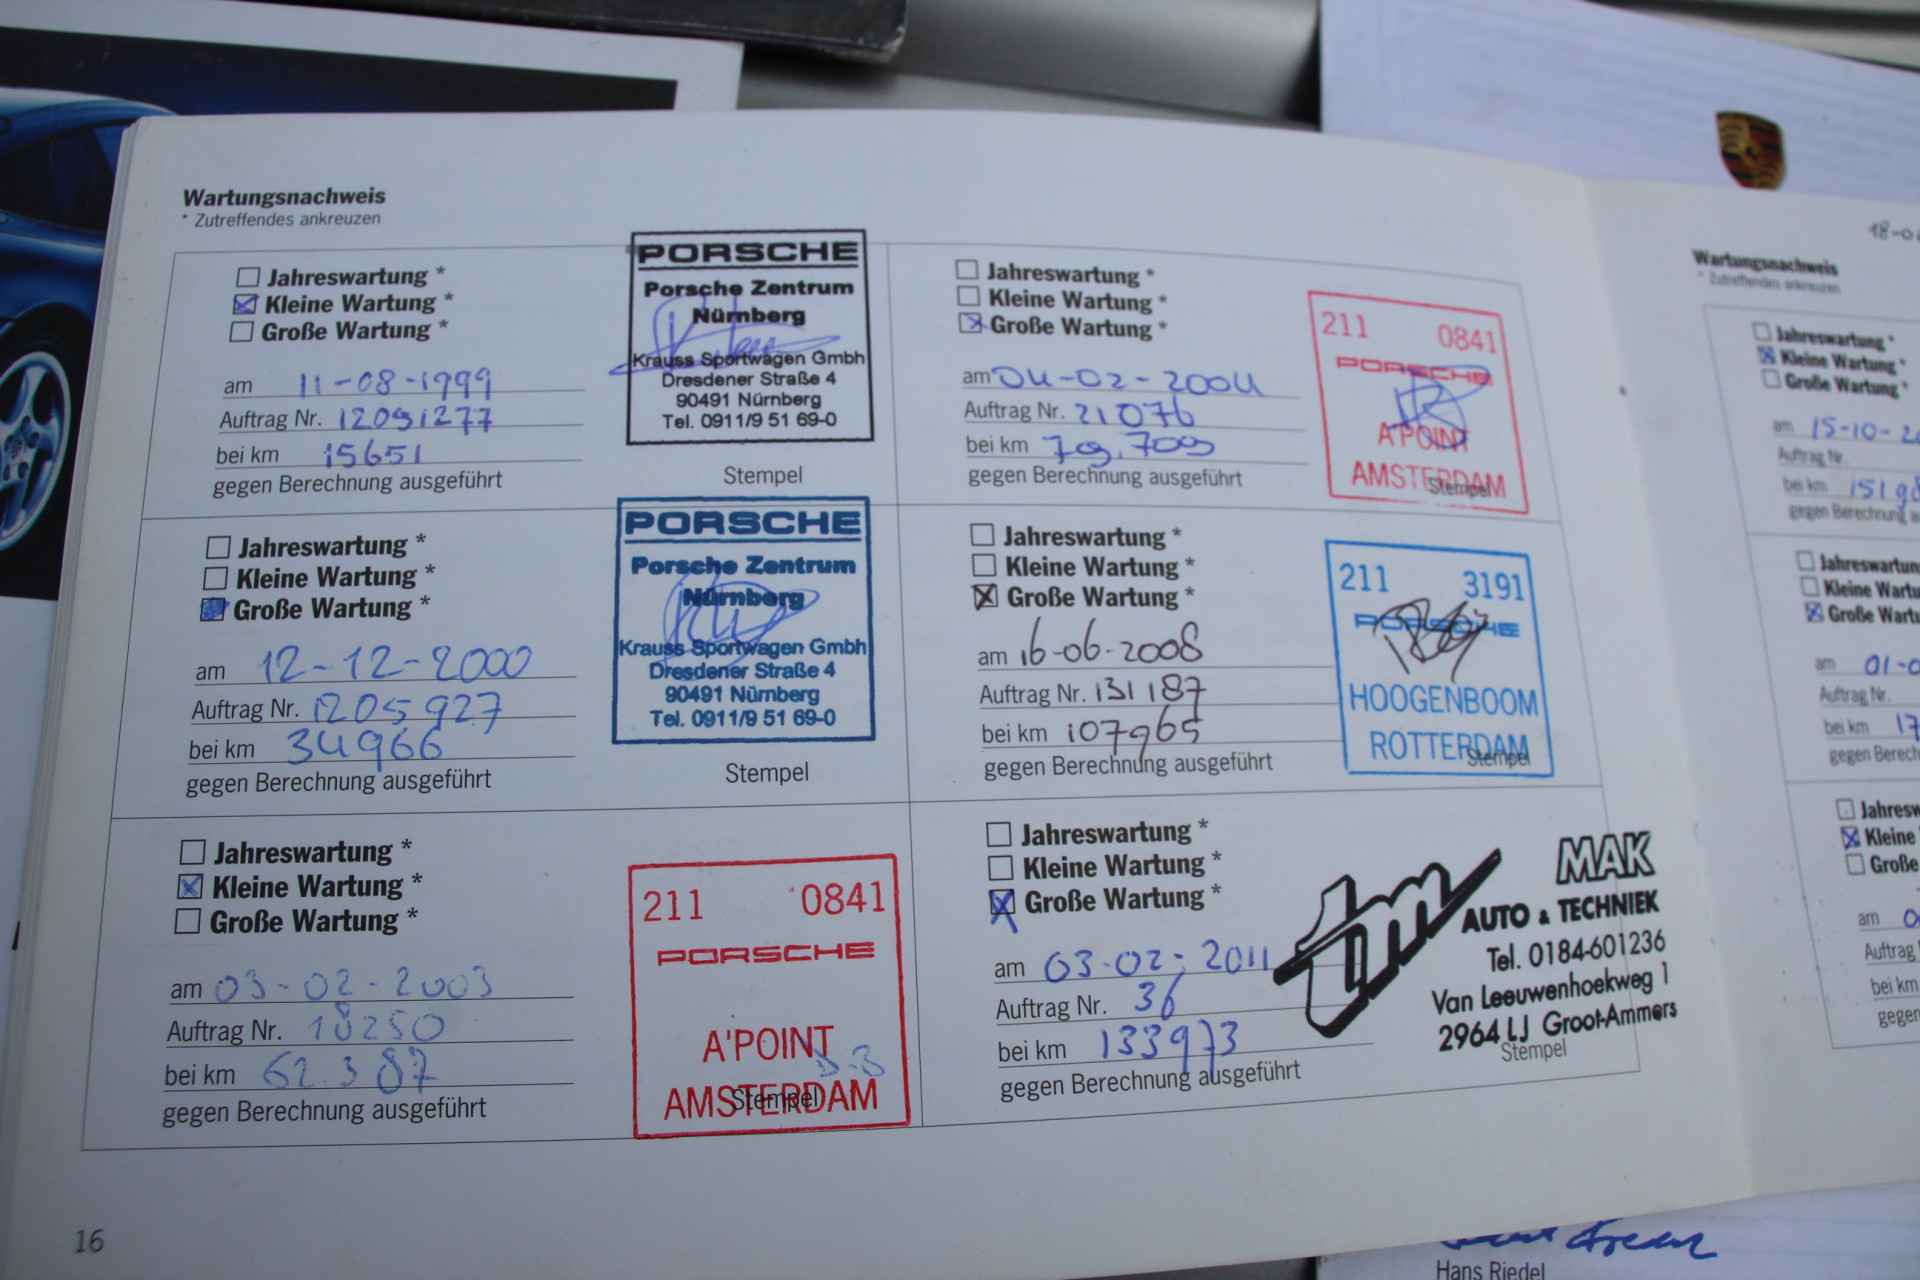 Wartungsnachweis
* Zutreffendes ankreuzen
Jahreswartung *
Kleine Wartung *
Große Wartung *
am 11-08-1999
Auftrag Nr. 12091277
bei km 15651
gegen Berechnung ausgeführt
PORSCHE
Porsche Zentrum
Nürnberg
Krauss Sportwagen Gmbh
Dresdener Straße 4
90491 Nürnberg
Tel. 0911/9 51 69-0
Stempel
Jahreswartung *
Kleine Wartung *
Große Wartung *
am 12-12-2000
Auftrag Nr. 1205927
bei km 34966
gegen Berechnung ausgeführt
PORSCHE
Porsche Zentrum
Nürnberg
Krauss Sportwagen Gmbh
Dresdener Straße 4
90491 Nürnberg
Tel. 0911/9 51 69-0
Stempel
Jahreswartung *
Kleine Wartung *
Große Wartung *
am 03-02-2003
Auftrag Nr. 18250
bei km 62.387
gegen Berechnung ausgeführt
211 0841
PORSCHE
A'POINT
AMSTERDAM
Stempel
16
Jahreswartung *
Kleine Wartung *
Große Wartung *
am 04-02-2004
Auftrag Nr. 21076
bei km 79.709
gegen Berechnung ausgeführt
211 0841
PORSCHE
A'POINT
AMSTERDAM
Stempel
Jahreswartung *
Kleine Wartung *
Große Wartung *
am 16-06-2008
Auftrag Nr. 131187
bei km 107965
gegen Berechnung ausgeführt
211 3191
PORSCHE
HOOGENBOOM
ROTTERDAM
Stempel
Jahreswartung *
Kleine Wartung *
Große Wartung *
am 03-02-2011
Auftrag Nr. 36
bei km 133973
gegen Berechnung ausgeführt
tm
MAK
AUTO & TECHNIEK
Tel. 0184-601236
Van Leeuwenhoekweg 1
2964 LJ Groot-Ammers
Stempel
Wartungsnachweis
* Zutreffendes ankreuzen
Jahreswartung *
Kleine Wartung *
Große Wartung *
am 15-10-2
Auftrag Nr.
bei km 151
gegen Berechnung
Jahreswartun
Kleine Wartu
Große Wartu
am 01-0
Auftrag Nr.
bei km 17
gegen Berech
Jahresw
Kleine
Große
am
Auftrag
bei km
gegen
Hans Riedel